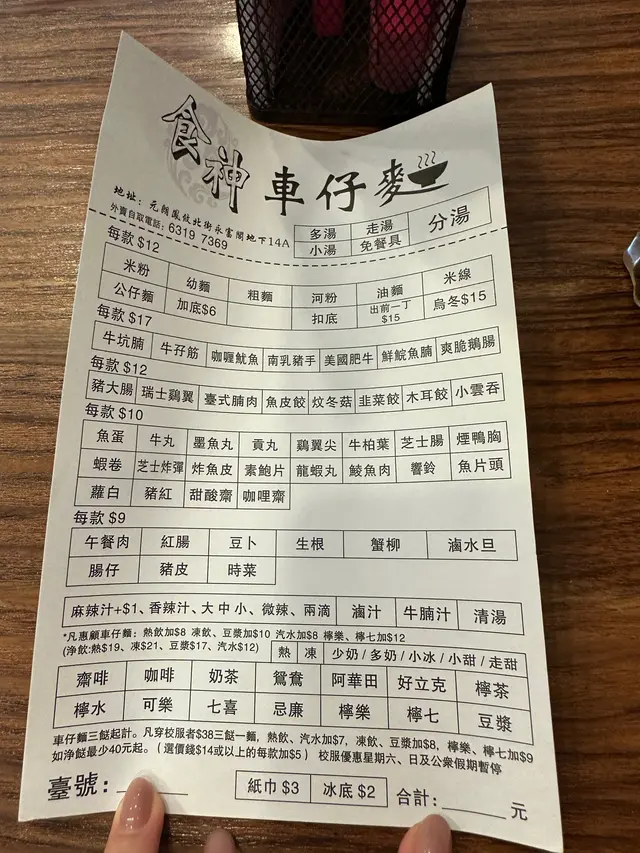 食神 車仔麥
地址：元朗鳳攸北街永富閣地下14A
外賣自取電話：6319 7369
多湯 走湯 分湯
小湯 免餐具
每款 $12
米粉 幼麵 粗麵 河粉 油麵 米線
公仔麵 加底$6 扣底 出前一丁$15 烏冬$15
每款 $17
牛坑腩 牛孖筋 咖喱魷魚 南乳豬手 美國肥牛 鮮鯇魚腩 爽脆鵝腸
每款 $12
豬大腸 瑞士鷄翼 臺式腩肉 魚皮餃 炆冬菇 韭菜餃 木耳餃 小雲吞
每款 $10
魚蛋 牛丸 墨魚丸 貢丸 鷄翼尖 牛柏葉 芝士腸 煙鴨胸
蝦卷 芝士炸彈 炸魚皮 素鮑片 龍蝦丸 鯪魚肉 響鈴 魚片頭
蘿白 豬紅 甜酸齋 咖哩齋
每款 $9
午餐肉 紅腸 豆卜 生根 蟹柳 滷水旦
腸仔 豬皮 時菜
麻辣汁+$1、香辣汁、大中小、微辣、兩滴 滷汁 牛腩汁 清湯
*凡惠顧車仔麵：熱飲加$8 凍飲、豆漿加$10 汽水加$8 檸樂、檸七加$12
(淨飲:熱$19、凍$21、豆漿$17、汽水$12) 熱 凍 少奶/多奶/小冰/小甜/走甜
齋啡 咖啡 奶茶 鴛鴦 阿華田 好立克 檸茶
檸水 可樂 七喜 忌廉 檸樂 檸七 豆漿
車仔麵三餸起計。凡穿校服者$38三餸一麵，熱飲、汽水加$7，凍飲、豆漿加$8，檸樂、檸七加$9
如淨餸最少40元起。（選價錢$14或以上的每款加$5） 校服優惠星期六、日及公衆假期暫停
臺號： 紙巾 $3 冰底 $2 合計： 元